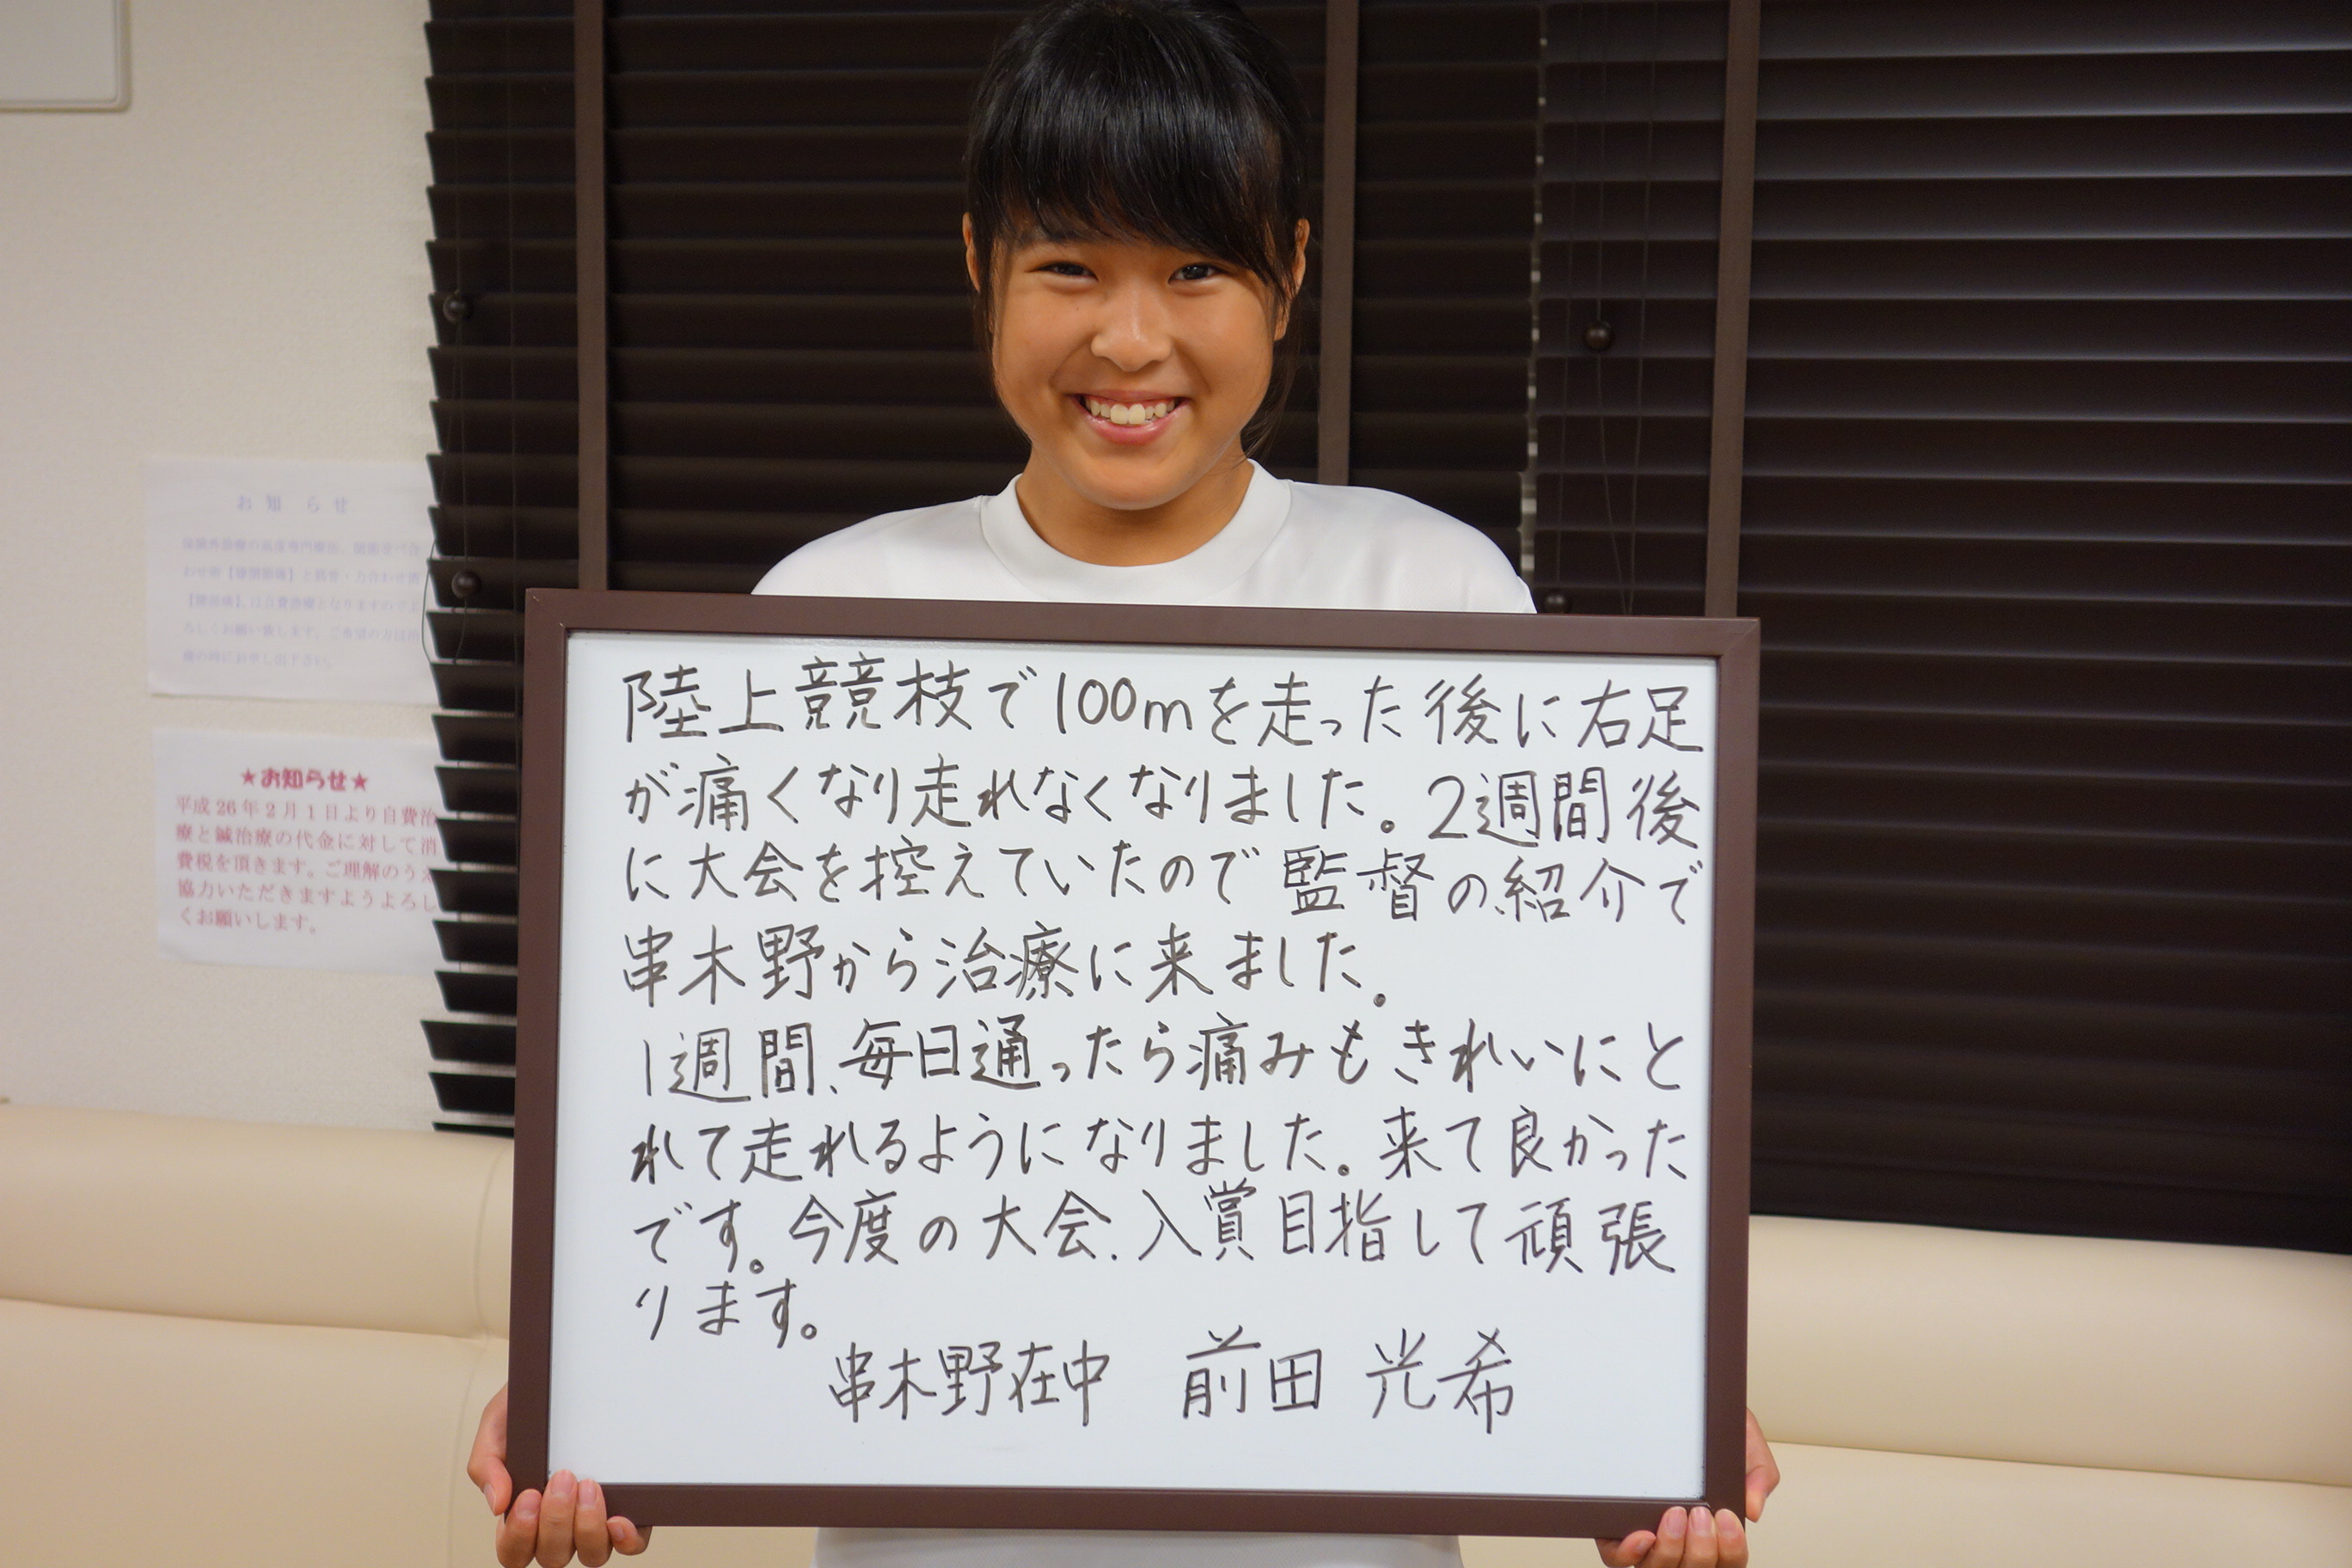 お知らせ
★お知らせ★
平成26年2月1日より自費治
療と鍼治療の代金に対して消
費税を頂きます。ご理解のうえ
協力いただきますようよろし
くお願いします。
陸上競技で100mを走った後に右足
が痛くなり走れなくなりました。2週間後
に大会を控えていたので監督の紹介で
串木野から治療に来ました。
1週間、毎日通ったら痛みもきれいにと
れて走れるようになりました。来て良かった
です。今度の大会、入賞目指して頑張
ります。
串木野在中 前田 光希